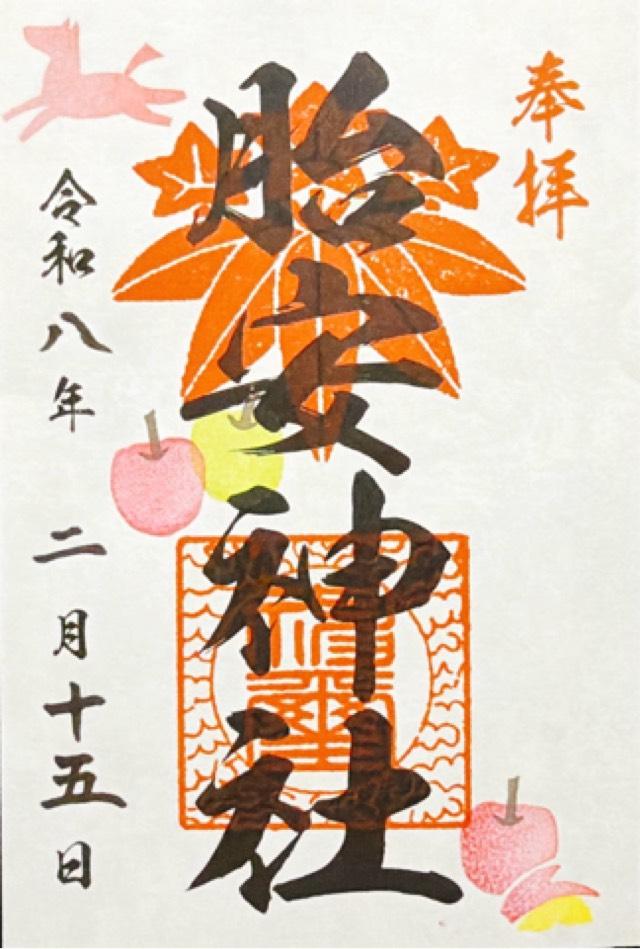 奉拝
胎安神社
令和八年 二月十五日